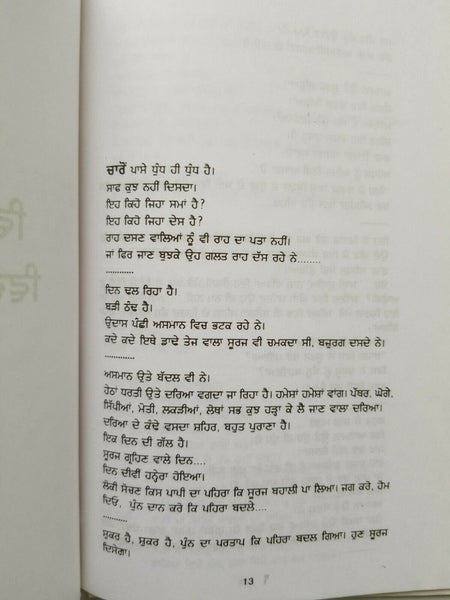 ਚਾਰੋਂ ਪਾਸੇ ਧੁੰਧ ਹੀ ਧੁੰਧ ਹੈ।
ਸਾਫ ਕੁਝ ਨਹੀਂ ਦਿਸਦਾ।
ਇਹ ਕਿਹੋ ਜਿਹਾ ਸਮਾਂ ਹੈ?
ਇਹ ਕਿਹੋ ਜਿਹਾ ਦੇਸ ਹੈ?
ਰਾਹ ਦਸਣ ਵਾਲਿਆਂ ਨੂੰ ਵੀ ਰਾਹ ਦਾ ਪਤਾ ਨਹੀਂ।
ਜਾਂ ਫਿਰ ਜਾਣ ਬੁਝਕੇ ਉਹ ਗਲਤ ਰਾਹ ਦੱਸ ਰਹੇ ਨੇ........
............
ਦਿਨ ਢਲ ਰਿਹਾ ਹੈ।
ਬੜੀ ਠੰਢ ਹੈ।
ਉਦਾਸ ਪੰਛੀ ਅਸਮਾਨ ਵਿਚ ਭਟਕ ਰਹੇ ਨੇ।
ਕਦੇ ਕਦੇ ਇਥੇ ਡਾਢੇ ਤੇਜ ਵਾਲਾ ਸੂਰਜ ਵੀ ਚਮਕਦਾ ਸੀ, ਬਜ਼ੁਰਗ ਦਸਦੇ ਨੇ।
............
ਅਸਮਾਨ ਉਤੇ ਬੱਦਲ ਵੀ ਨੇ।
ਹੇਠਾਂ ਧਰਤੀ ਉਤੇ ਦਰਿਆ ਵਗਦਾ ਜਾ ਰਿਹਾ ਹੈ। ਹਮੇਸ਼ਾਂ ਹਮੇਸ਼ਾਂ ਵਾਂਗ। ਪੱਥਰ, ਘੋਗੇ,
ਸਿੱਪੀਆਂ, ਮੋਤੀ, ਲਕੜੀਆਂ, ਲੋਥਾਂ ਸਭ ਕੁਝ ਹੜ੍ਹਾ ਕੇ ਲੈ ਜਾਣ ਵਾਲਾ ਦਰਿਆ।
ਦਰਿਆ ਦੇ ਕੰਢੇ ਵਸਦਾ ਸ਼ਹਿਰ, ਬਹੁਤ ਪੁਰਾਣਾ ਹੈ।
ਇਕ ਦਿਨ ਦੀ ਗੱਲ ਹੈ।
ਸੂਰਜ ਗ੍ਰਹਿਣ ਵਾਲੇ ਦਿਨ....
ਦਿਨ ਦੀਵੀਂ ਹਨ੍ਹੇਰਾ ਹੋਇਆ।
ਲੋਕੀ ਸੋਚਣ ਕਿਸ ਪਾਪੀ ਦਾ ਪਹਿਰਾ ਕਿ ਸੂਰਜ ਬਹਾਲੀ ਪਾ ਲਿਆ। ਜਗ ਕਰੋ, ਹੋਮ
ਦਿਓ, ਪੁੰਨ ਦਾਨ ਕਰੋ ਕਿ ਪਹਿਰਾ ਬਦਲੇ....
..........
ਸ਼ੁਕਰ ਹੈ, ਸ਼ੁਕਰ ਹੈ, ਪੁੰਨ ਦਾ ਪਰਤਾਪ ਕਿ ਪਹਿਰਾ ਬਦਲ ਗਿਆ। ਹੁਣ ਸੂਰਜ
ਦਿਸੇਗਾ।
13